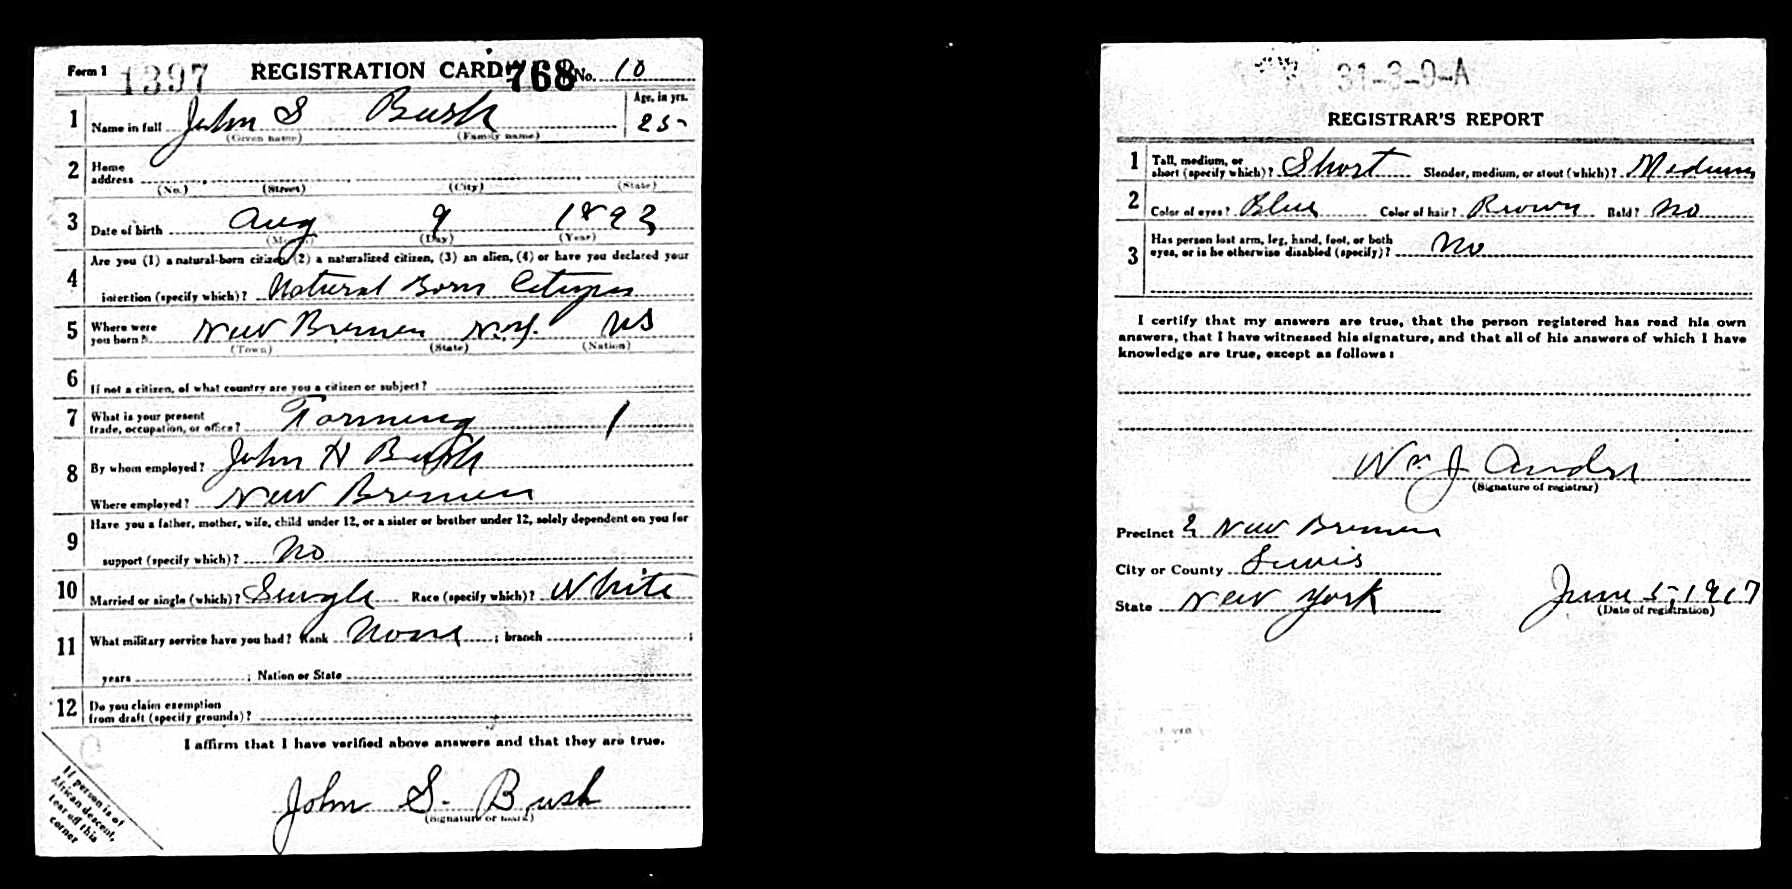 Form 1 1397 REGISTRATION CARD 768 No. 10
1 Name in full John S Bush Age, in yrs. 25
(Given name) (Family name)
2 Home address
(No.) (Street) (City) (State)
3 Date of birth Aug 9 1892
(Month) (Day) (Year)
Are you (1) a natural-born citizen, (2) a naturalized citizen, (3) an alien, (4) or have you declared your
4 intention (specify which)? Natural Born Citizen
5 Where were you born? New Bremen N.Y. US
(Town) (State) (Nation)
6 If not a citizen, of what country are you a citizen or subject?
7 What is your present trade, occupation, or office? Farming 1
8 By whom employed? John H Bush
Where employed? New Bremen
Have you a father, mother, wife, child under 12, or a sister or brother under 12, solely dependent on you for
9 support (specify which)? No
10 Married or single (which)? Single Race (specify which)? White
11 What military service have you had? Rank None ; branch ;
years ; Nation or State
12 Do you claim exemption from draft (specify grounds)?
I affirm that I have verified above answers and that they are true.
John S. Bush
(Signature or mark)
If person is of
African descent,
tear off this
corner
31-3-9-A
REGISTRAR'S REPORT
1 Tall, medium, or short (specify which)? Short Slender, medium, or stout (which)? Medium
2 Color of eyes? Blue Color of hair? Brown Bald? No
3 Has person lost arm, leg, hand, foot, or both eyes, or is he otherwise disabled (specify)? No
I certify that my answers are true, that the person registered has read his own
answers, that I have witnessed his signature, and that all of his answers of which I have
knowledge are true, except as follows:
Wm J
(Signature of registrar)
Precinct 2 New Bremen
City or County Lewis
State New York June 5, 1917
(Date of registration)